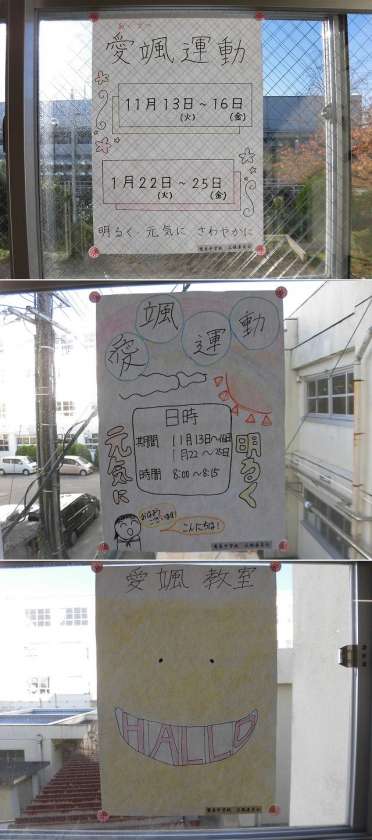 あいさつ
愛颯運動
11月13日～16日
(火) (金)
1月22日～25日
(火) (金)
明るく 元気に さわやかに
愛颯運動
日時
期間 11月13日～16日
1月22～25日
時間 8:00～8:15
元気に
明るく
おはよう
ございます!
こんにちは!
愛颯 教室
HALLO